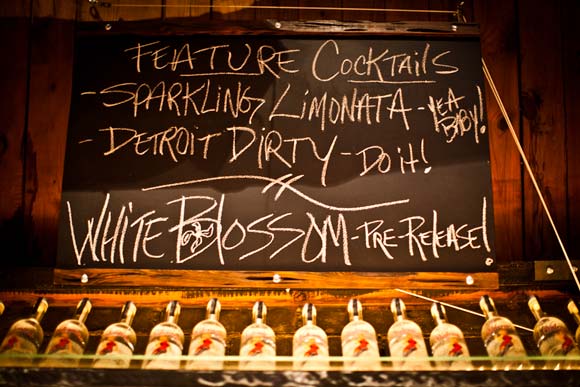 FEATURE COCKTAILS
- SPARKLING LIMONATA - YEA BABY!
- DETROIT DIRTY - DO it!
WHITE BLOSSOM - PRE-RELEASE!